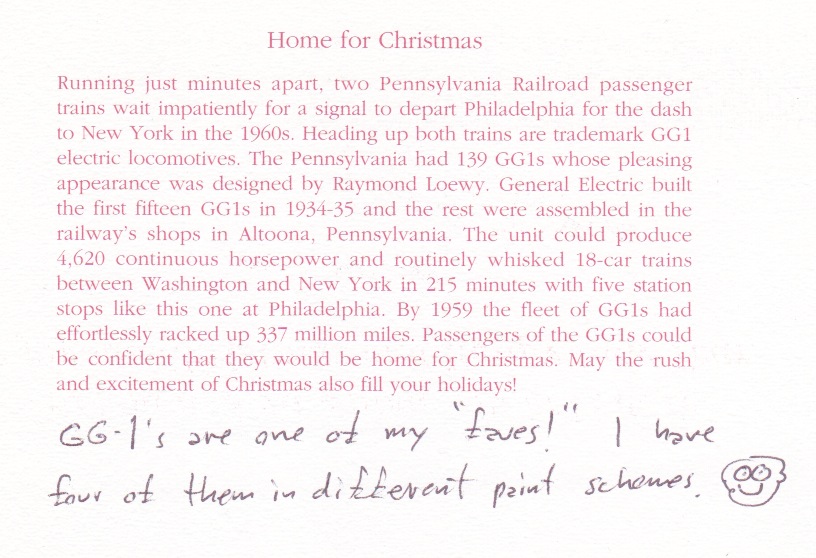 Home for Christmas
Running just minutes apart, two Pennsylvania Railroad passenger
trains wait impatiently for a signal to depart Philadelphia for the dash
to New York in the 1960s. Heading up both trains are trademark GG1
electric locomotives. The Pennsylvania had 139 GG1s whose pleasing
appearance was designed by Raymond Loewy. General Electric built
the first fifteen GG1s in 1934-35 and the rest were assembled in the
railway's shops in Altoona, Pennsylvania. The unit could produce
4,620 continuous horsepower and routinely whisked 18-car trains
between Washington and New York in 215 minutes with five station
stops like this one at Philadelphia. By 1959 the fleet of GG1s had
effortlessly racked up 337 million miles. Passengers of the GG1s could
be confident that they would be home for Christmas. May the rush
and excitement of Christmas also fill your holidays!
GG-1's are one of my "faves!" I have
four of them in different paint schemes.